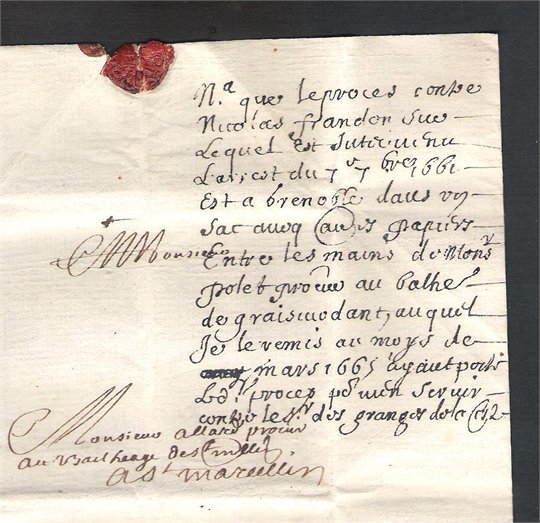 N.ª que le proces contre
Nicolas frandon sur
Lequel Est Intervenu
L'arrest du 7ᵉ 7bre 1661
Est a Grenoble dans un
sac avecq autres papiers
Entre les mains de Monsʳ
polet procur au balhe
de graisivodant, auquel
Je le remis au moys de
mars 1665 ayant porté
Led. proces pʳ m'en servir
contre le sʳ des granges de la
Monsieur
Monsieur allard procur
au Bailheage de st
a st marcellin